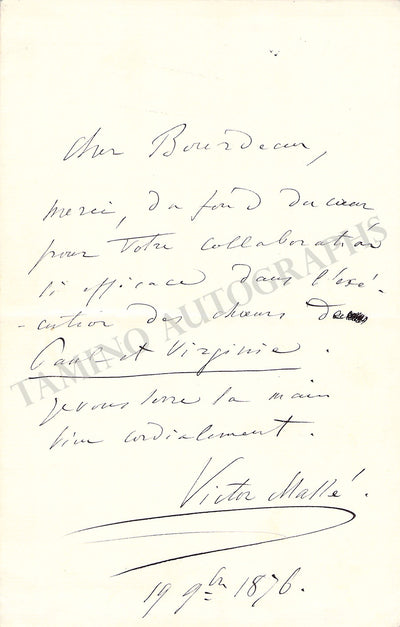 Cher Bourdeau,
merci, du fond du cœur
pour votre collaboration
si efficace dans l'exé-
-cution des chœurs de
Paul et Virginie.
je vous serre la main
bien cordialement.
Victor Massé.
19 9bre 1876.
TAMINO AUTOGRAPHS